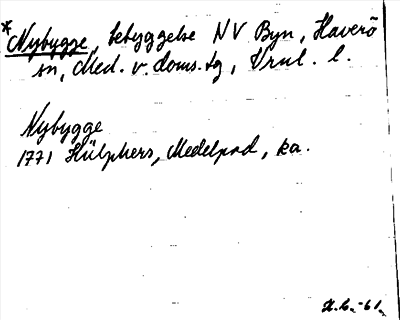 *Nybygge, bebyggelse NV Byn, Haverö
sn, Med. v. doms. tg, Vrnl. l.
Nybygge
1771 Hülphers, Medelpad, ka.
H.C. -61.